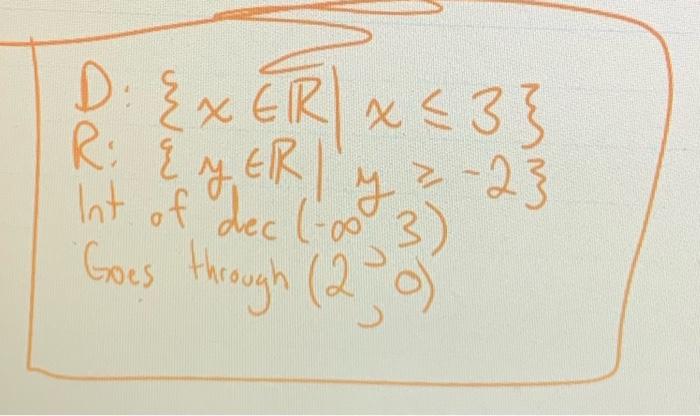 D: {x ∈ ℝ | x ≤ 3}
R: {y ∈ ℝ | y ≥ -2}
Int of dec (-∞, 3)
Goes through (2, 0)